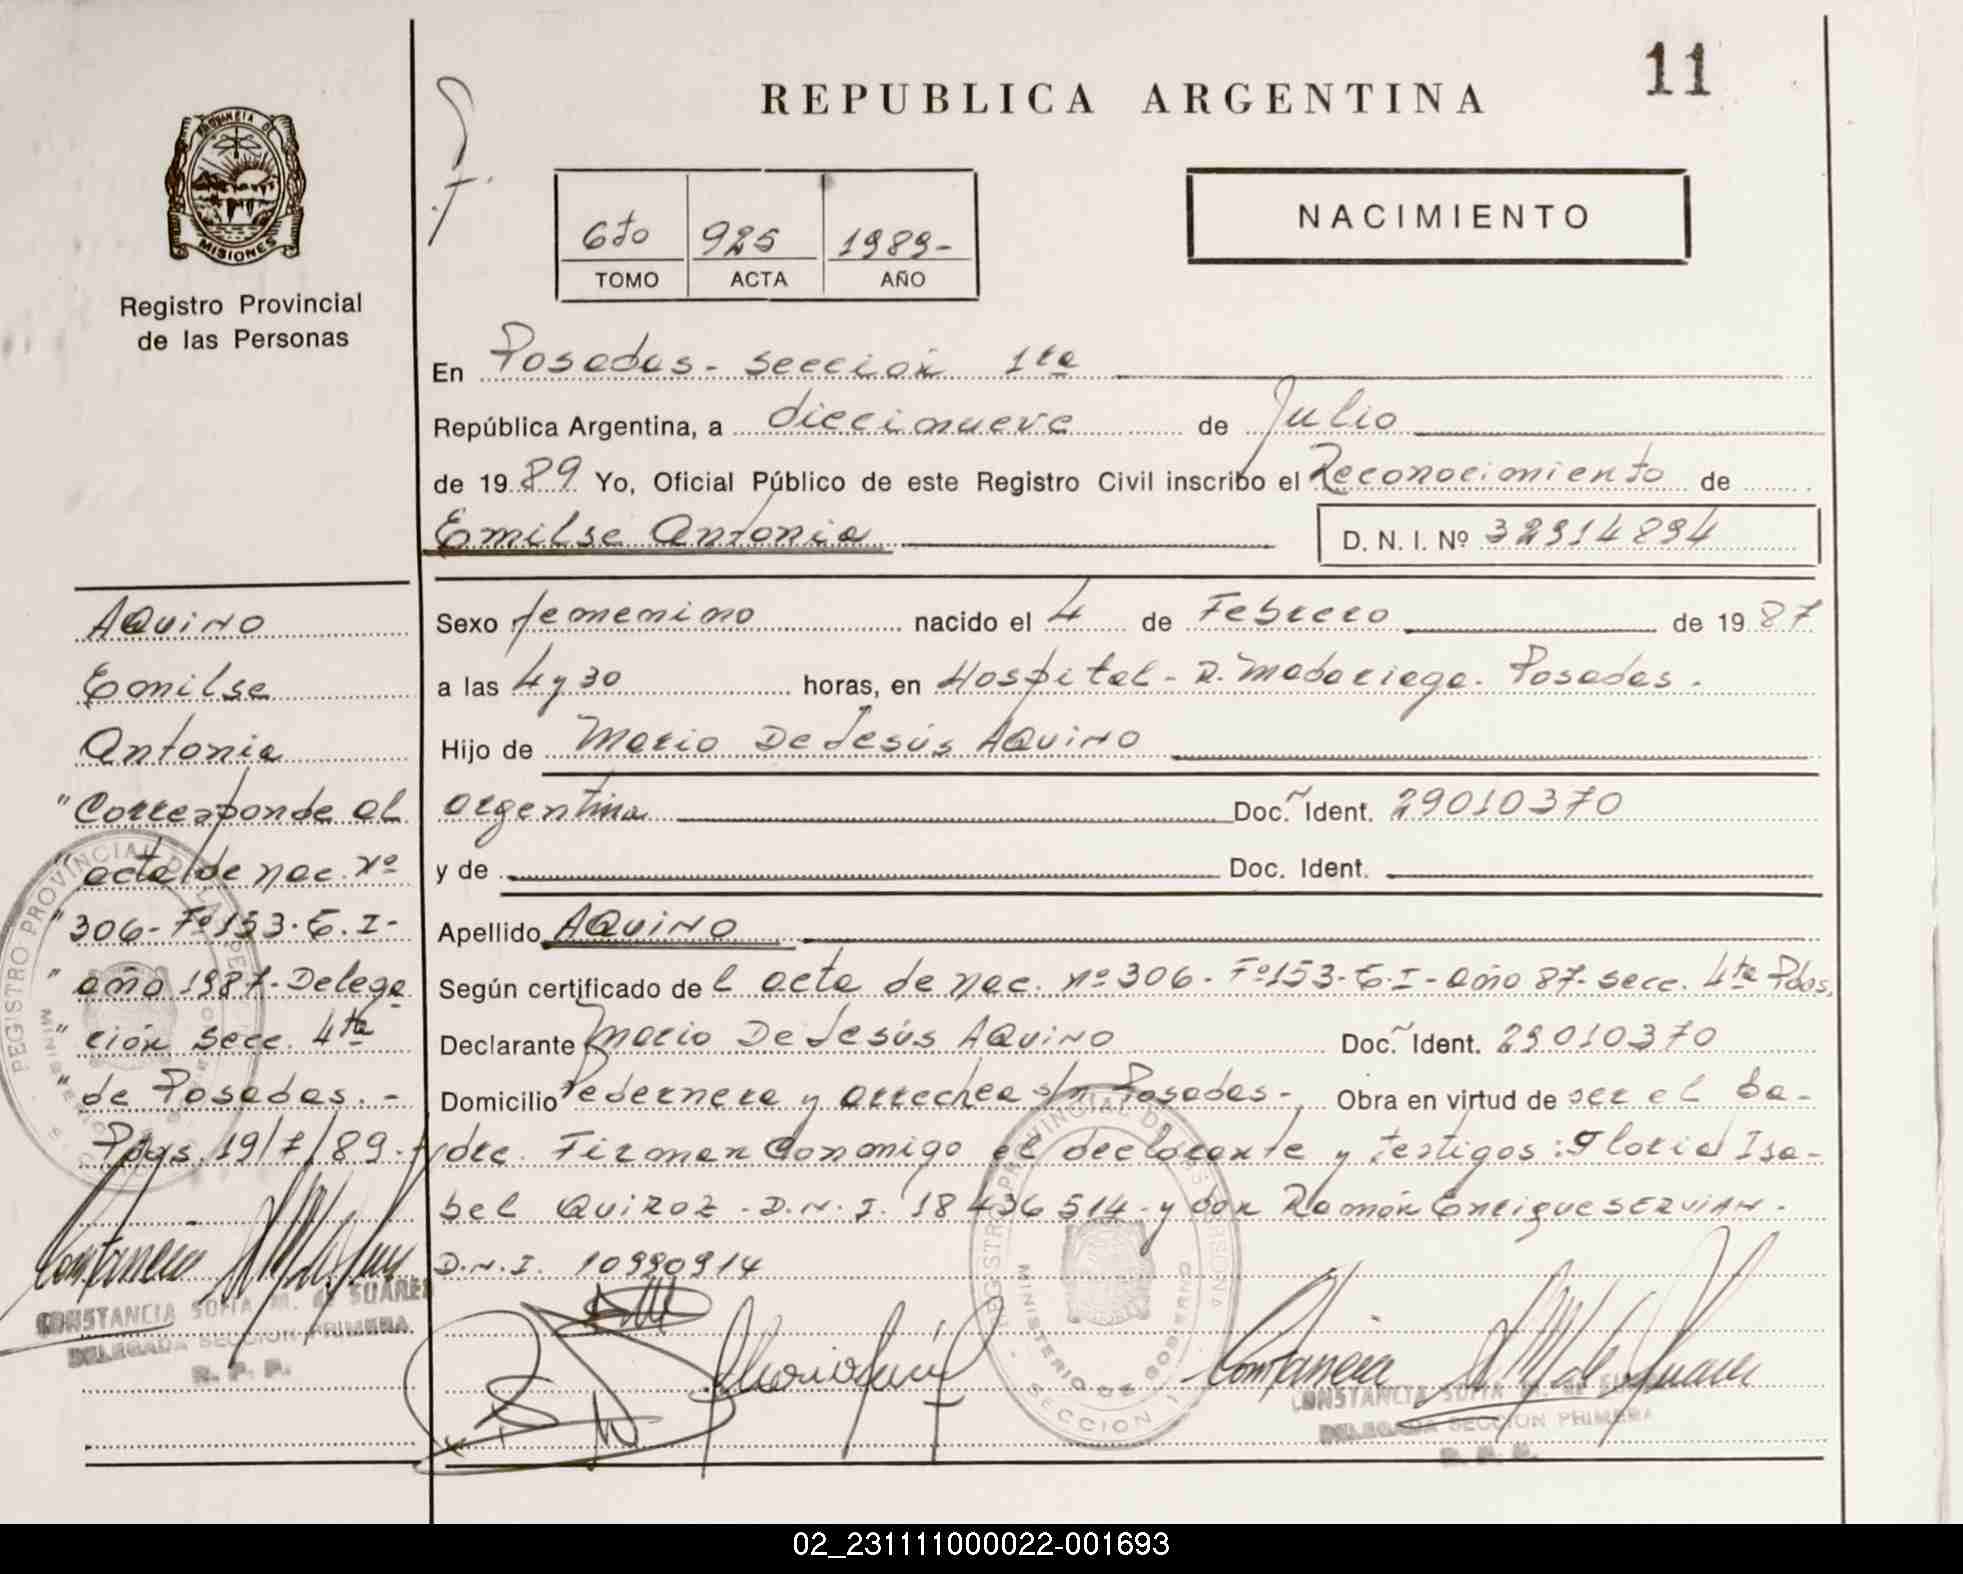 11
REPUBLICA ARGENTINA
PROVINCIA DE
MISIONES
Registro Provincial
de las Personas
6to 925 1989-
TOMO ACTA AÑO
NACIMIENTO
En Posadas - sección 1ra
República Argentina, a diecinueve de Julio
de 1989 Yo, Oficial Público de este Registro Civil inscribo el Reconocimiento de
Emilse Antonia D. N. I. Nº 32914894
Sexo femenino nacido el 4 de Febrero de 1987
a las 4 y 30 horas, en Hospital - R. Madariaga. Posadas.
Hijo de Mario De Jesús AQUINO
argentina Doc. Ident. 29010370
y de Doc. Ident.
Apellido AQUINO
Según certificado de l acta de nac. nº 306 - Fº 153 - T. I - año 87 - secc. 4ta Pdas.
Declarante Mario De Jesús AQUINO Doc. Ident. 29.010370
Domicilio Pedernera y Arrechea s/n Posadas -, Obra en virtud de ser el pa-
dre. Firman conmigo el declarante y testigos: Gloria Isa-
bel QUIROZ - D.N.I. 18436514 - y don Ramón Enrique SERVIAN -
D.N.I. 10990914
AQUINO
Emilse
Antonia
"Corresponde al
"acta de nac. nº
"306 - Fº 153 - T. I -
"año 1987 - Delega
"ción secc. 4ta
"de Posadas. -
Pdas. 19/7/89 -
CONSTANCIA SOFIA M. de SUAREZ
DELEGADA SECCION PRIMERA
R. P. P.
REGISTRO PROVINCIAL DE LAS PERSONAS
MINISTERIO DE GOBIERNO
SECCION 1
CONSTANCIA SOFIA M. de SUAREZ
DELEGADA SECCION PRIMERA
R. P. P.
02_231111000022-001693